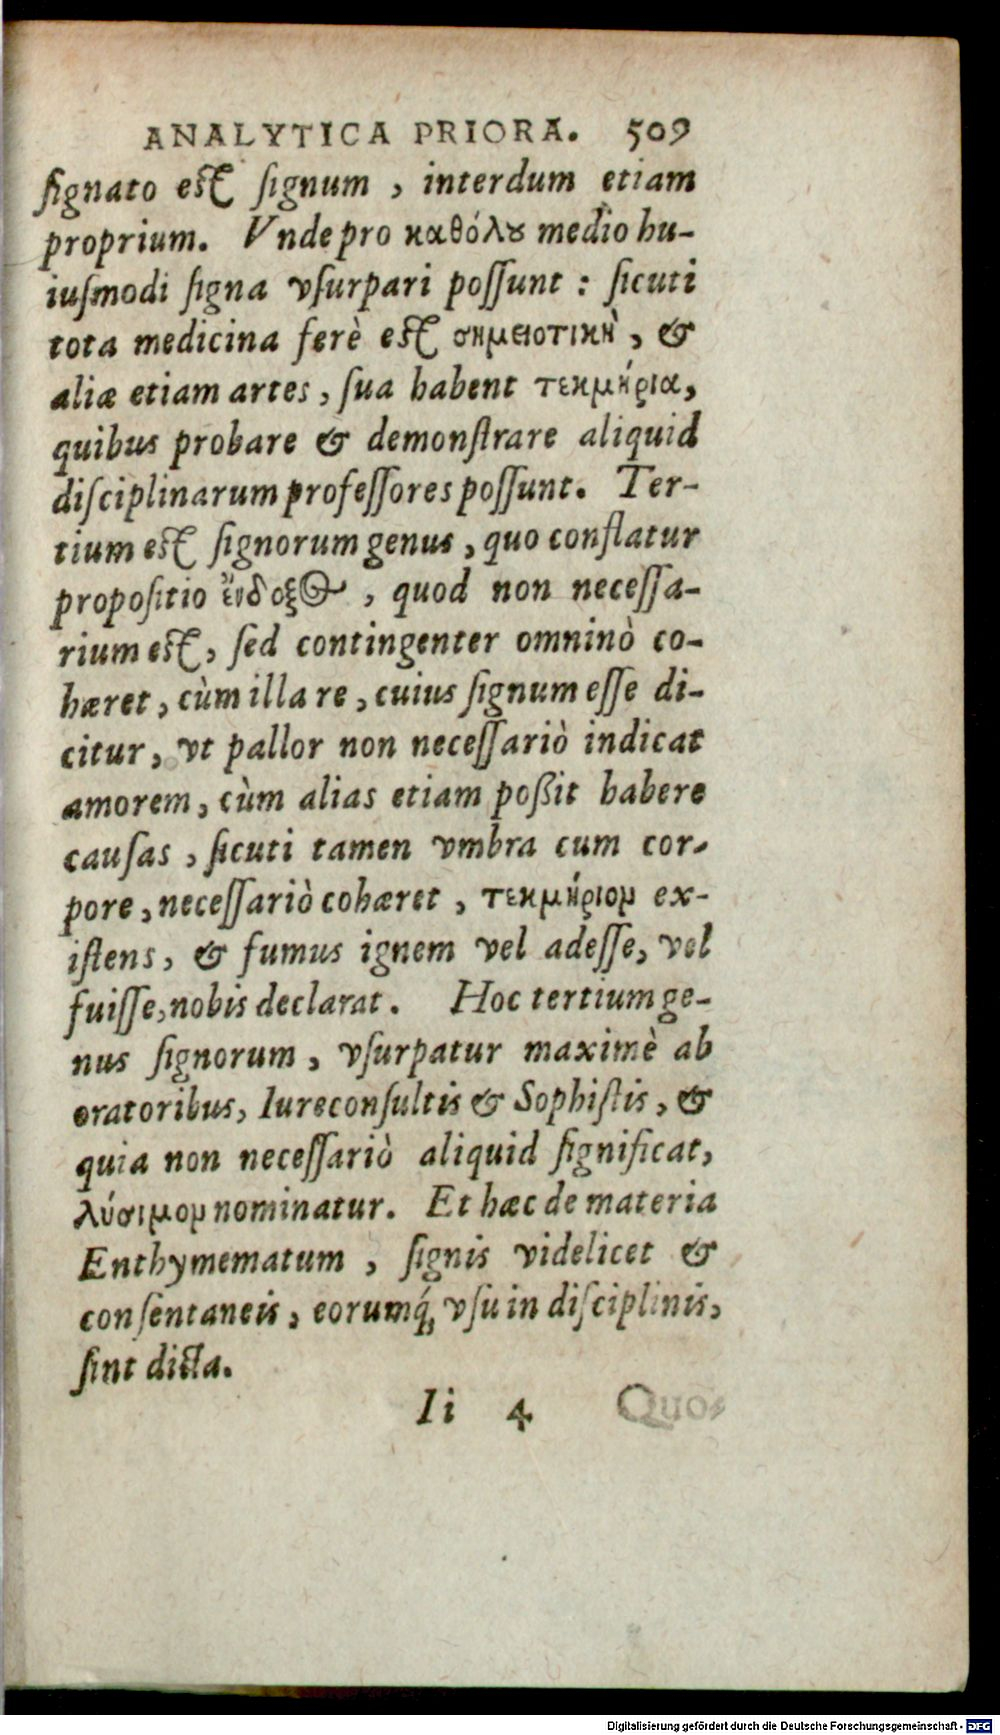 ANALYTICA PRIORA. 509
ſignato eſt ſignum, interdum etiam
proprium. Vnde pro καθόλȣ medio hu-
iuſmodi ſigna vſurpari poſſunt: ſicuti
tota medicina ferè eſt σημειοτικὴ, &
aliæ etiam artes, ſua habent τεκμήρια,
quibus probare & demonſtrare aliquid
diſciplinarum profeſſores poſſunt. Ter-
tium eſt ſignorum genus, quo conſtatur
propoſitio ἔνδοξος, quod non neceſſa-
rium eſt, ſed contingenter omninò co-
hæret, cùm illa re, cuius ſignum eſſe di-
citur, vt pallor non neceſſariò indicat
amorem, cùm alias etiam poßit habere
cauſas, ſicuti tamen vmbra cum cor-
pore, neceſſariò cohæret, τεκμήριον ex-
iſtens, & fumus ignem vel adeſſe, vel
fuiſſe, nobis declarat. Hoc tertium ge-
nus ſignorum, vſurpatur maximè ab
oratoribus, Iureconſultis & Sophiſtis, &
quia non neceſſariò aliquid ſignificat,
λύσιμον nominatur. Et hæc de materia
Enthymematum, ſignis videlicet &
conſentaneis, eorumq́; vſu in diſciplinis,
ſint dicta.
Ii 4 Quo-
Digitalisierung gefördert durch die Deutsche Forschungsgemeinschaft - DFG